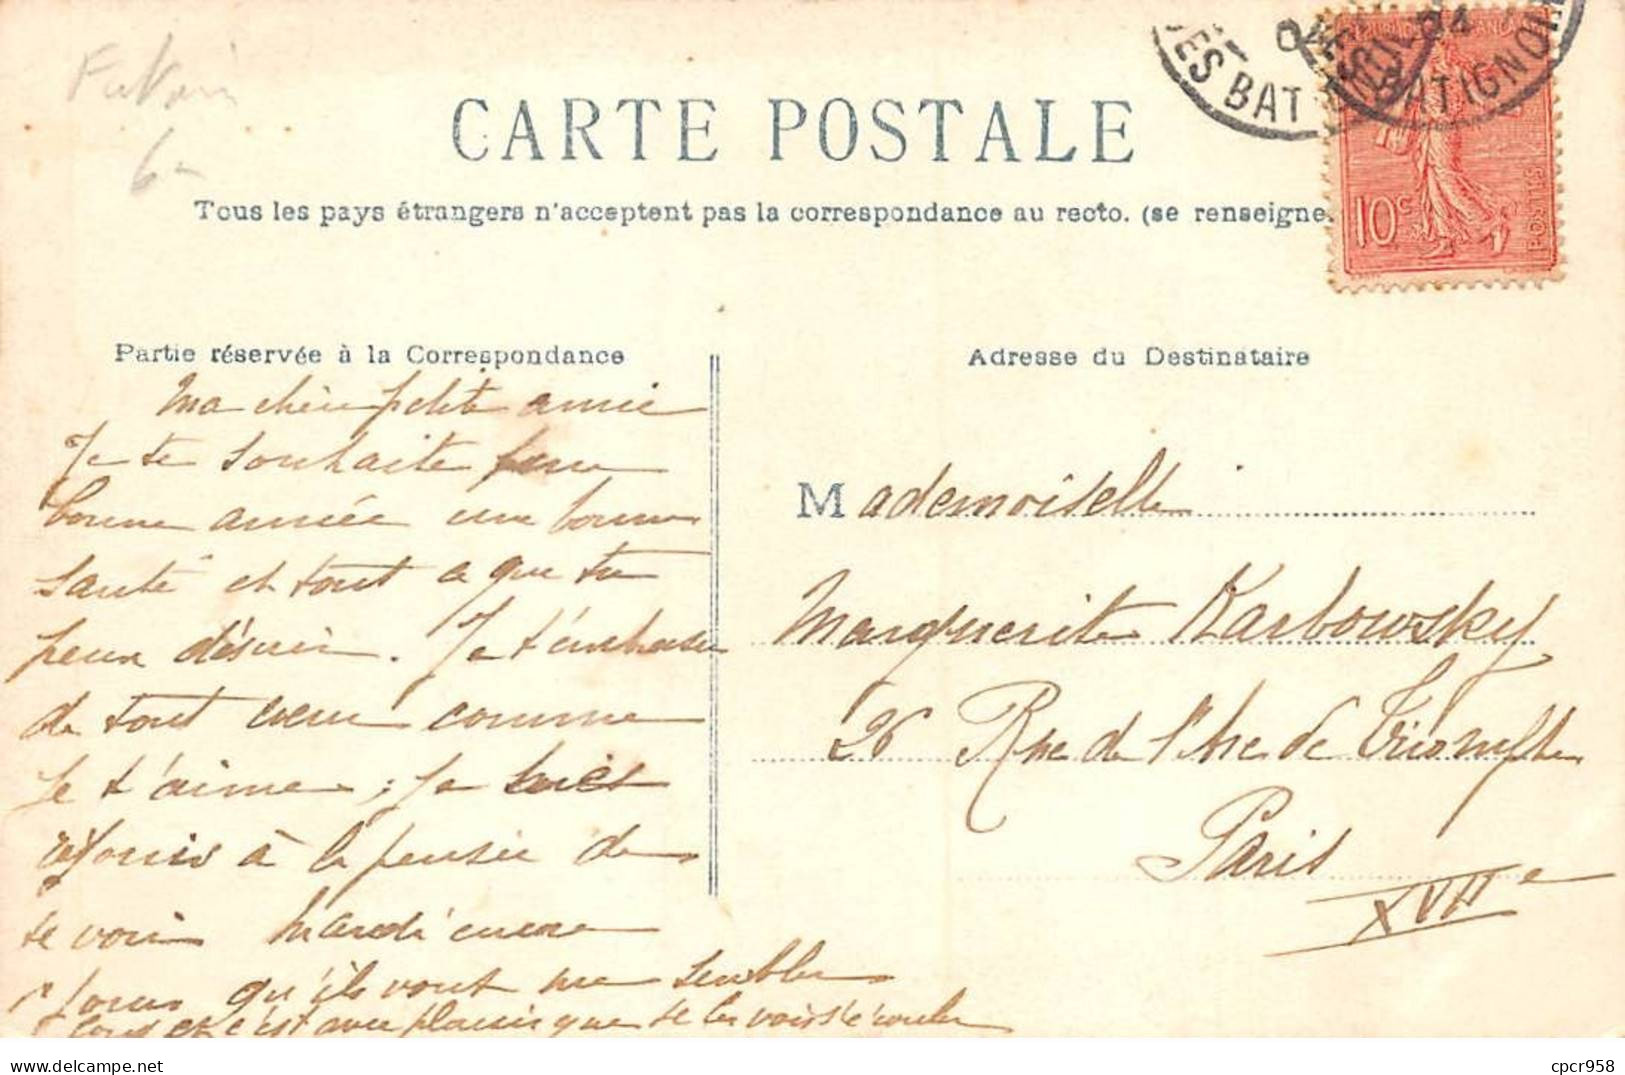 Fantaisie
6-
CARTE POSTALE
Tous les pays étrangers n'acceptent pas la correspondance au recto. (se renseigne
10c
POSTES
DES BATIGNOL
BATIGNOL
04
Partie réservée à la Correspondance
Adresse du Destinataire
Ma chère petite amie
Je te souhaite une
bonne année une bonne
santé et tout ce que tu
peux désirer. Je t'embrasse
de tout cœur comme
je t'aime ; je suis
réjouis à la pensée de
te voir mardi encore
jours qu'ils vont me sembler
longs et c'est avec plaisir que je les vois s'écouler
Mademoiselle
Marguerite Karbowsky
26 Rue de l'Arc de Triomphe
Paris
XVIIe
cpcr958